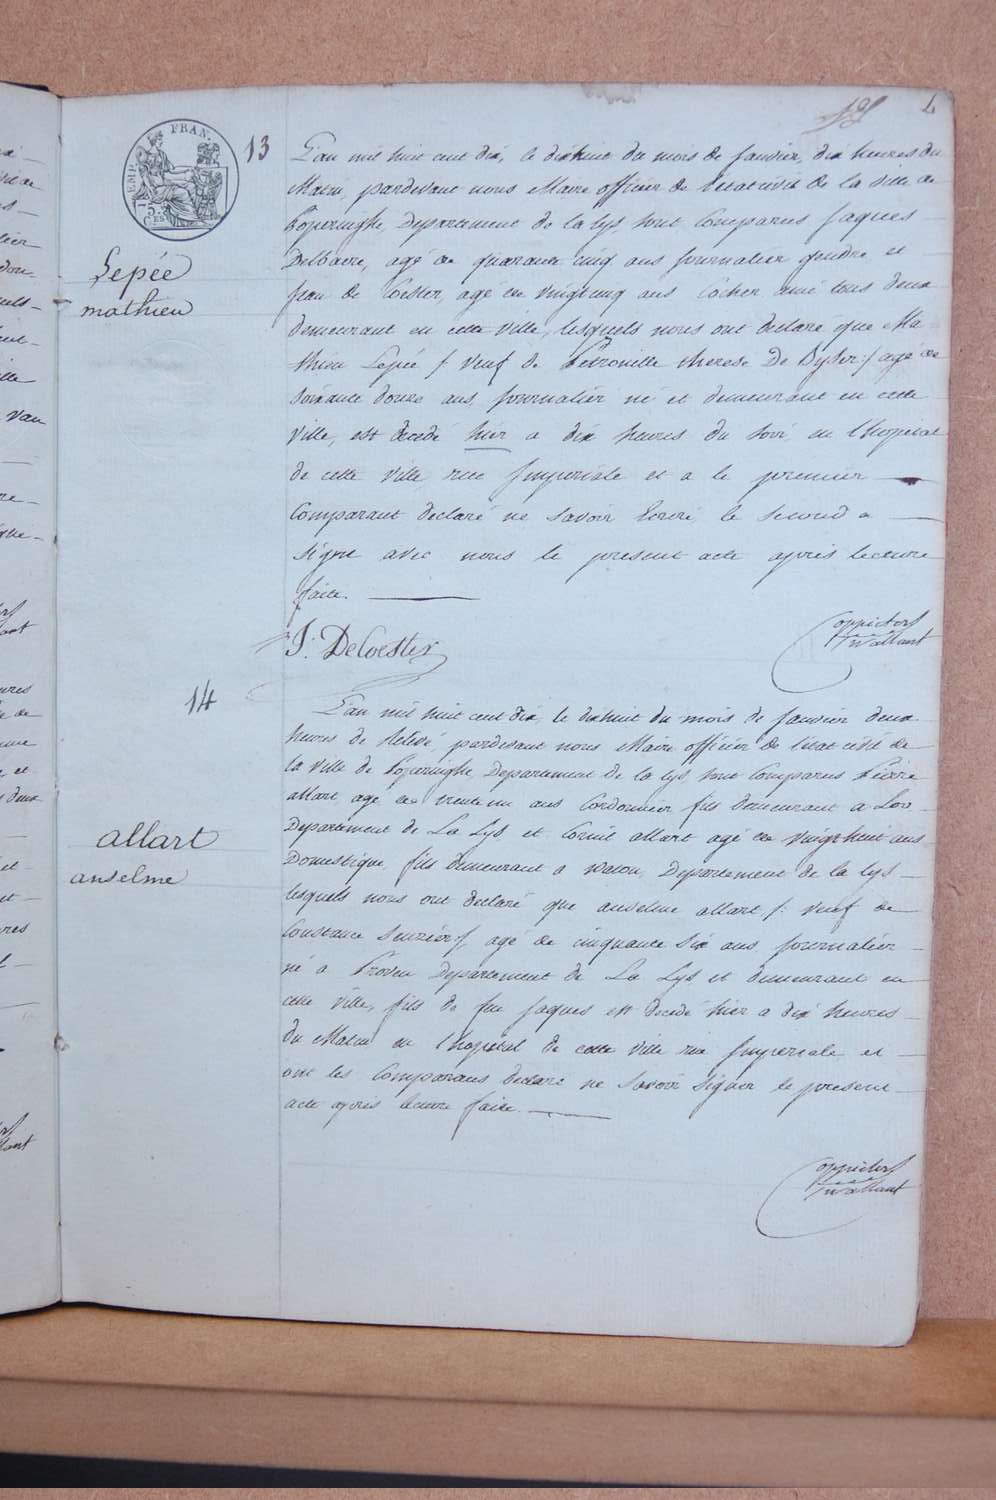 EMP. FRAN.
13
L'an mil huit cent dix, le dixhuit du mois de Janvier, dix heures du
Matin, pardevant nous Maire officier de l'état civil de la ville de
Poperinghe, Departement de la Lys, sont Comparus Jaques
Delbaere, agé de quarante cinq ans journalier gendre et
Jean de Coester, agé de vingtcinq ans Cocher ami tous deux
demeurant en cette ville, lesquels nous ont declaré que Ma-
thieu Lepée /: veuf de Petronille therese De Dyster :/ agé de
Soixante douze ans, journalier né et demeurant en cette
Ville, est decedé hier a dix heures du soir, en l'hopital
de cette ville, rue Imperiale et a le premier
Comparant declaré ne savoir Ecrire, le second a
signé avec nous le present acte après lecture
faite.
Lepée
mathieu
J: DeCoester
14
L'an mil huit cent dix, le dixhuit du mois de Janvier deux
heures de relevé, pardevant nous Maire officier de l'état civil de
la ville de Poperinghe, Departement de la Lys, sont Comparus Pierre
allart, agé de trente un ans Cordonnier, fils demeurant a Loo
Departement de La Lys, et Cornil allart agé de vingt huit ans
Domestique, fils demeurant a watou, Departement de la Lys
lesquels nous ont declaré que anselme allart /: veuf de
Constance :/, agé de cinquante six ans journalier
né a Proven Departement de La Lys et demeurant en
cette ville, fils de feu Jaques est decedé hier a dix heures
du Matin en l'hopital de cette ville rue Imperiale et
ont les Comparans declaré ne savoir signer le present
acte après lecture faite.
allart
anselme